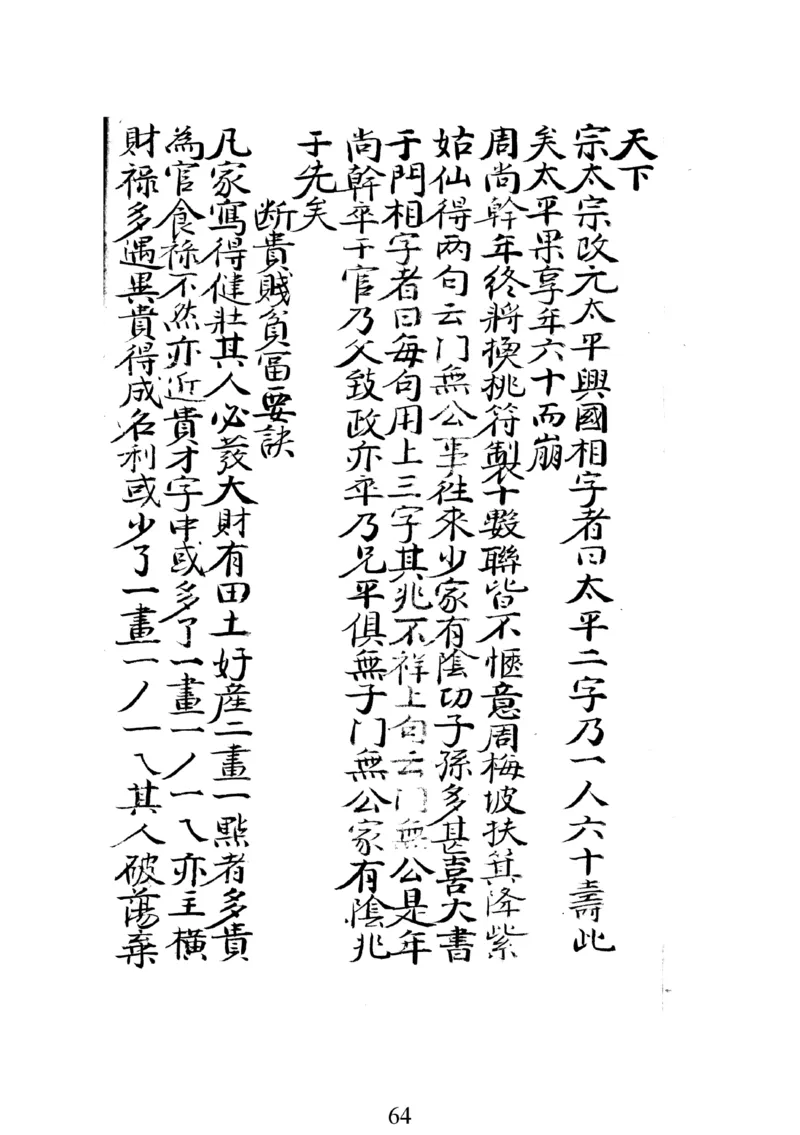 天下
宗太宗改元太平興國相字者曰太平二字乃一人六十壽此
矣太平果享年六十而崩
周尚幹年終將換桃符製十數聯皆不愜意周梅坡扶箕降紫
姑仙得两句云门無公事往來少家有陰功子孫多甚喜大書
于門相字者曰每句用上三字其兆不祥上句云门無公是年
尚幹卒于官乃父致政亦卒乃兄平俱無子门無公家有陰兆
于先矣
断貴賤貧富要訣
凡家寫得健壯其人必發大財有田土好產二畫一點者多貴
為官食祿不然亦近貴才字中或多了一畫一丿一乀亦主橫
財祿多遇異貴得成名利或少了一畫一丿一乀其人破蕩棄
64